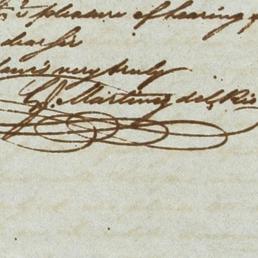 pleasure of hearing
dear sir
very truly
J. Martinez del Rio